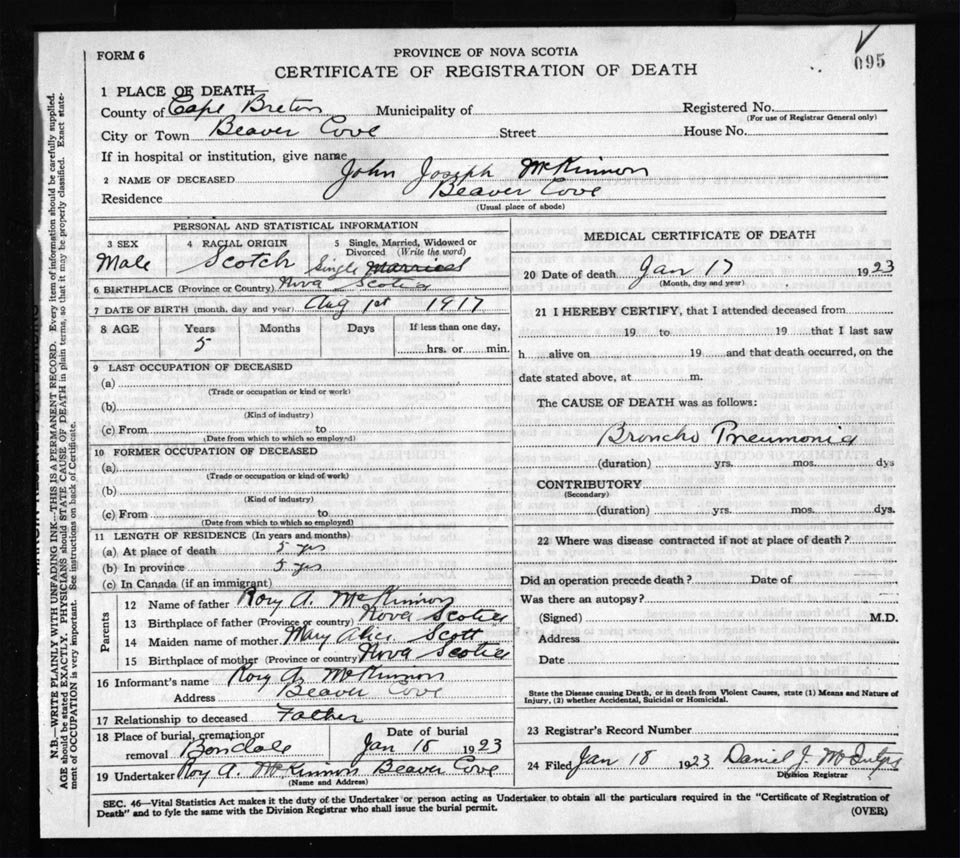 FORM 6
PROVINCE OF NOVA SCOTIA
095
CERTIFICATE OF REGISTRATION OF DEATH
1 PLACE OF DEATH—
County of Cape Breton Municipality of Registered No.
(For use of Registrar General only)
City or Town Beaver Cove Street House No.
If in hospital or institution, give name
2 NAME OF DECEASED John Joseph McKinnon
Residence Beaver Cove
(Usual place of abode)
PERSONAL AND STATISTICAL INFORMATION
3 SEX 4 RACIAL ORIGIN 5 Single, Married, Widowed or
Divorced (Write the word)
Male Scotch Single Married
6 BIRTHPLACE (Province or Country) Nova Scotia
7 DATE OF BIRTH (month, day and year) Aug 1st 1917
8 AGE Years Months Days If less than one day,
5 hrs. or min.
9 LAST OCCUPATION OF DECEASED
(a)
(Trade or occupation or kind or work)
(b)
(Kind of industry)
(c) From to
(Date from which to which so employed)
10 FORMER OCCUPATION OF DECEASED
(a)
(Trade or occupation or kind of work)
(b)
(Kind of industry)
(c) From to
(Date from which to which so employed)
11 LENGTH OF RESIDENCE (In years and months)
(a) At place of death 5 yrs
(b) In province 5 yrs
(c) In Canada (if an immigrant)
Parents
12 Name of father Rory A. McKinnon
13 Birthplace of father (Province or country) Nova Scotia
14 Maiden name of mother Mary Alice Scott
15 Birthplace of mother (Province or country) Nova Scotia
16 Informant's name Rory A. McKinnon
Address Beaver Cove
17 Relationship to deceased Father
18 Place of burial, cremation or Date of burial
removal Boisdale Jan 18 1923
19 Undertaker Roy A. McKinnon Beaver Cove
(Name and Address)
MEDICAL CERTIFICATE OF DEATH
20 Date of death Jan 17 1923
(Month, day and year)
21 I HEREBY CERTIFY, that I attended deceased from
19 to 19 that I last saw
h alive on 19 and that death occurred, on the
date stated above, at m.
The CAUSE OF DEATH was as follows:
Broncho Pneumonia
(duration) yrs. mos. dys
CONTRIBUTORY
(Secondary)
(duration) yrs. mos. dys.
22 Where was disease contracted if not at place of death?
Did an operation precede death? Date of
Was there an autopsy?
(Signed) M.D.
Address
Date
State the Disease causing Death, or in death from Violent Causes, state (1) Means and Nature of
Injury, (2) whether Accidental, Suicidal or Homicidal.
23 Registrar's Record Number
24 Filed Jan 18 1923 Daniel J.
Division Registrar
SEC. 46—Vital Statistics Act makes it the duty of the Undertaker or person acting as Undertaker to obtain all the particulars required in the "Certificate of Registration of
Death" and to fyle the same with the Division Registrar who shall issue the burial permit. (OVER)
N.B.—WRITE PLAINLY WITH UNFADING INK—THIS IS A PERMANENT RECORD. Every item of information should be carefully supplied.
AGE should be stated EXACTLY. PHYSICIANS should STATE CAUSE OF DEATH in plain terms, so that it may be properly classified. Exact state-
ment of OCCUPATION is very important. See instructions on back of Certificate.